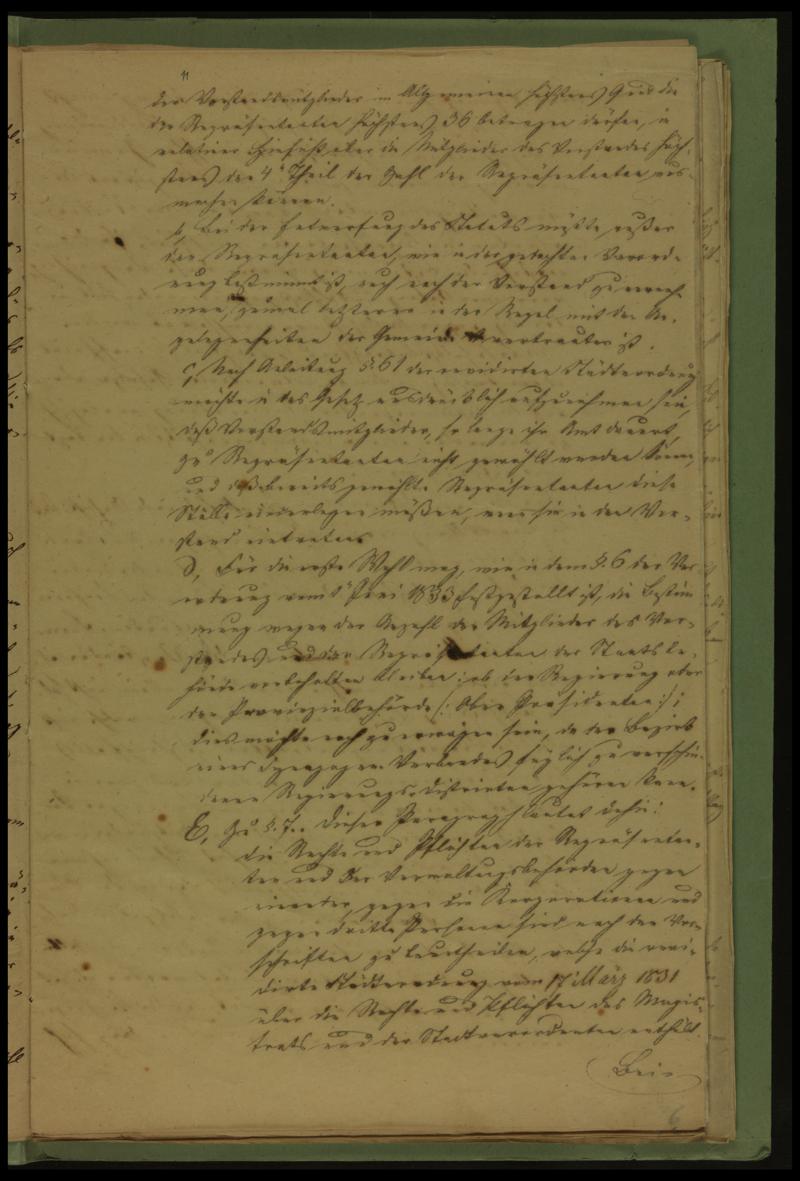 der Vorstandsmitglieder im Allgemeinen höchstens 9 und die
der Repräsentanten höchstens 36 betragen dürfen, in
relativer Hinsicht aber die Mitglieder des Vorstandes höch-
stens den 4ten Theil der Zahl der Repräsentanten aus-
machen können.
b, Bei der Entwerfung des Statuts müßte, außer
den Repräsentanten, wie in der gedachten Verord-
nung bestimmt ist, auch noch der Vorstand zu
men, zumal letzterer in der Regel mit den An-
gelegenheiten der Gemeinde vertrauter ist.
c, Nach Anleitung §. 61 der revidirten Städteordnung
möchte in das Gesetz ausdrücklich aufzunehmen sein,
daß Vorstandsmitglieder, so lange ihr Amt dauert,
zu Repräsentanten nicht gewählt werden können,
und daß bereits gewählte Repräsentanten diese
Stelle niederlegen müßten, wenn sie in den Vor-
stand eintreten.
d, Für die erste Wahl mag, wie in dem §. 6 der Ver-
ordnung vom 1ten Juni 1833 festgestellt ist, die Bestim-
mung wegen der Anzahl der Mitglieder des Vor-
standes und der Repräsentanten der Staatsbe-
hörde vorbehalten bleiben; ob der Regierung oder
der Provinzialbehörde /: Ober Präsidenten :/;
dies möchte noch zu erwägen sein, da der Bezirk
eines Synagogen Verbandes füglich zu verschie-
denen Regierungs-Districten gehören kann.
E, Zu §. 7. Dieser Paragraph lautet dahin:
die Rechte und Pflichten der Repräsentan-
ten und der Verwaltungsbehörden gegen
einander, gegen die Korporationen und
gegen dritte Personen sind nach den Vor-
schriften zu beurtheilen, welche die revi-
dirte Städteordnung vom 17t März 1831
über die Rechte und Pflichten des Magis-
trats und der Stadtverordneten enthält.